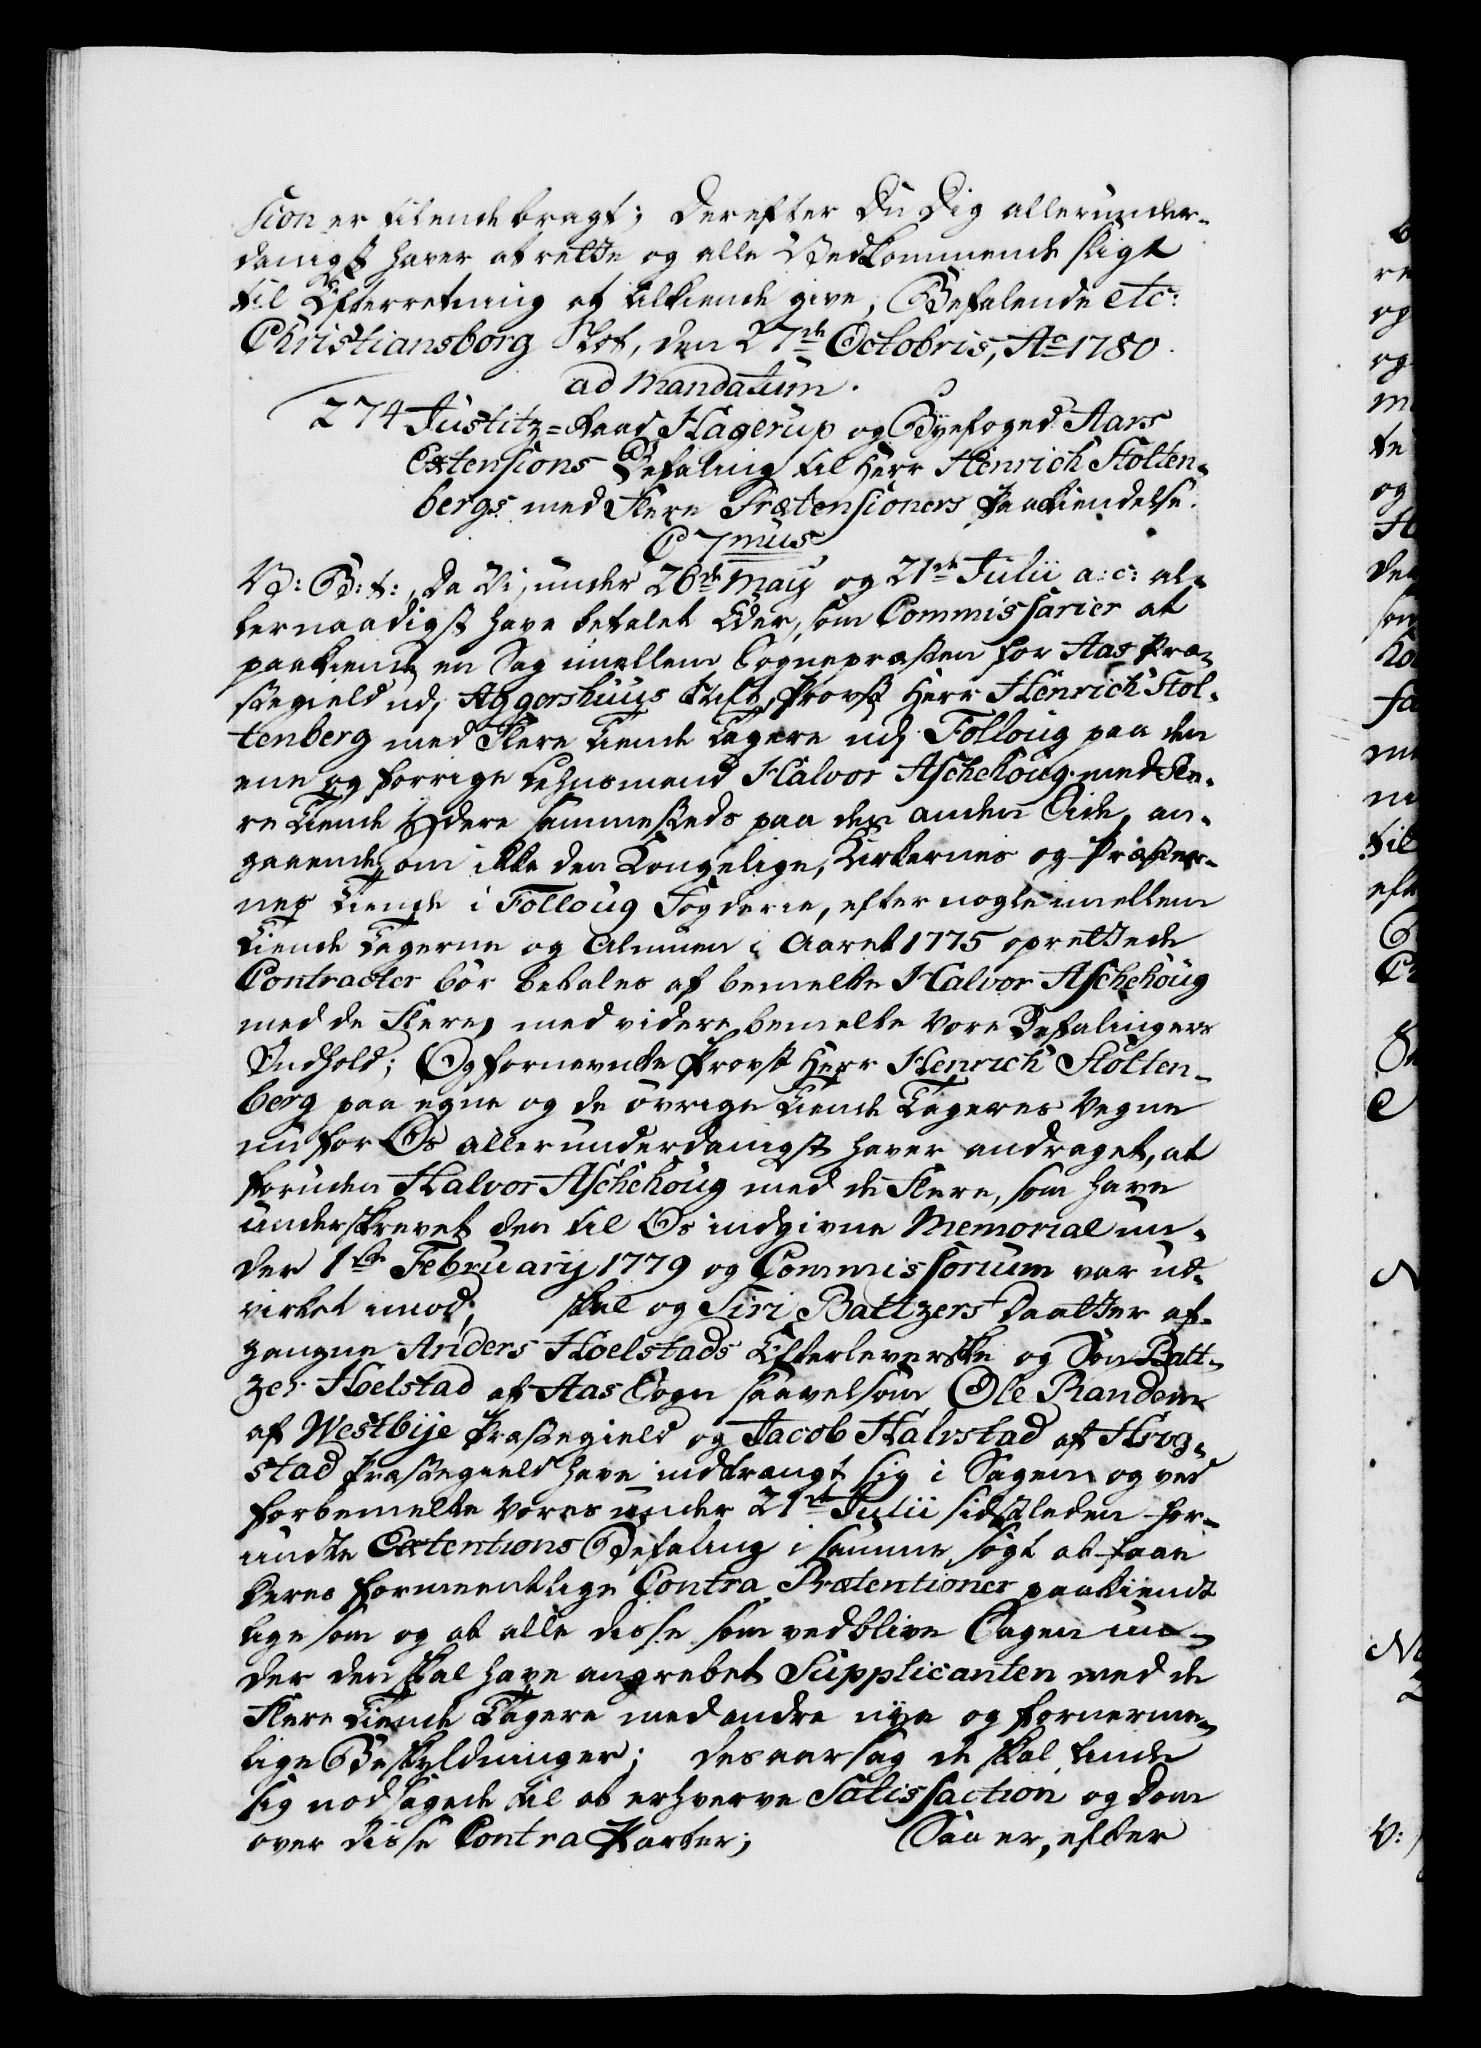 sion er tilendebragt; Derefter Du Dig allerunder-
danigst haver at rette og alle Vedkommende sligt
til Efterretning at tilkiende give, Befalende etc:
Christiansborg Slot, den 27de Octobris, Ao 1780.
ad Mandatum.
274 Justitz=Raad Hagerup og Byefoged Aars
Extensions Befaling til Herr Henrich Stolten-
bergs med Flere Prætensioners Paakiendelse.
C7mus
V: G: t:, Da Vi, under 26de Maij og 21de Julii a: c: al-
lernaadigst have befalet Eder, som Commissarier at
paakiende en Sag imellem Sognepræsten for Aas Præ-
stegield udj Aggershuus Stift, Provst Herr Henrich Stol-
tenberg med Flere Tiende Tagere udj Folloug paa den
ene og forrige Lehnsmand Halvor Aschehoug med Fle-
re Tiende Ydere sammesteds paa den anden Side, an-
gaaende, om ikke den Kongelige, Kirkernes og Præster-
nes Tiende i Folloug Fogderie, efter nogle imellem
Tiende Tagerne og Almuen i Aaret 1775 oprettede
Contracter bör betales af bemelte Halvor Aschehoug
med de Flere, med videre bemelte Vore Befalingers
Indhold; Og fornevnte Provst Herr Henrich Stolten-
berg paa egne og de övrige Tiende Tageres Vegne
nu for Os allerunderdanigst haver andraget, at
foruden Halvor Aschehoug med de Flere, som have
underskrevet den til Os indgivne Memorial un-
der 1ste February 1779 og Commissorium var ud-
virket imod, skal og Siri Baltzers Daatter af-
gangne Anders Hoelstads Efterleverske og Sön Balt-
zer Hoelstad af Aas Sogn saavelsom Ole Randem
af Westbije Præstegield og Jacob Halvstad af Krog-
stad Præstegield have indtrængt sig i Sagen og ved
forbemelte Vores under 21de Julii sidstleden for-
undte Extentions Befaling i samme, sögt at faae
deres formeentlige Contra Prætentioner paakiendt
lige som og at alle disse som vedblive Sagen un-
der den skal have angrebet Supplicanten med de
Flere Tiende Tagere med andre nye og fornerme-
lige Beskyldninger; desaarsag de skal finde
sig nödsagede til at erhverve Satisfaction og Dom
over disse Contra Parter; Saa er, efter